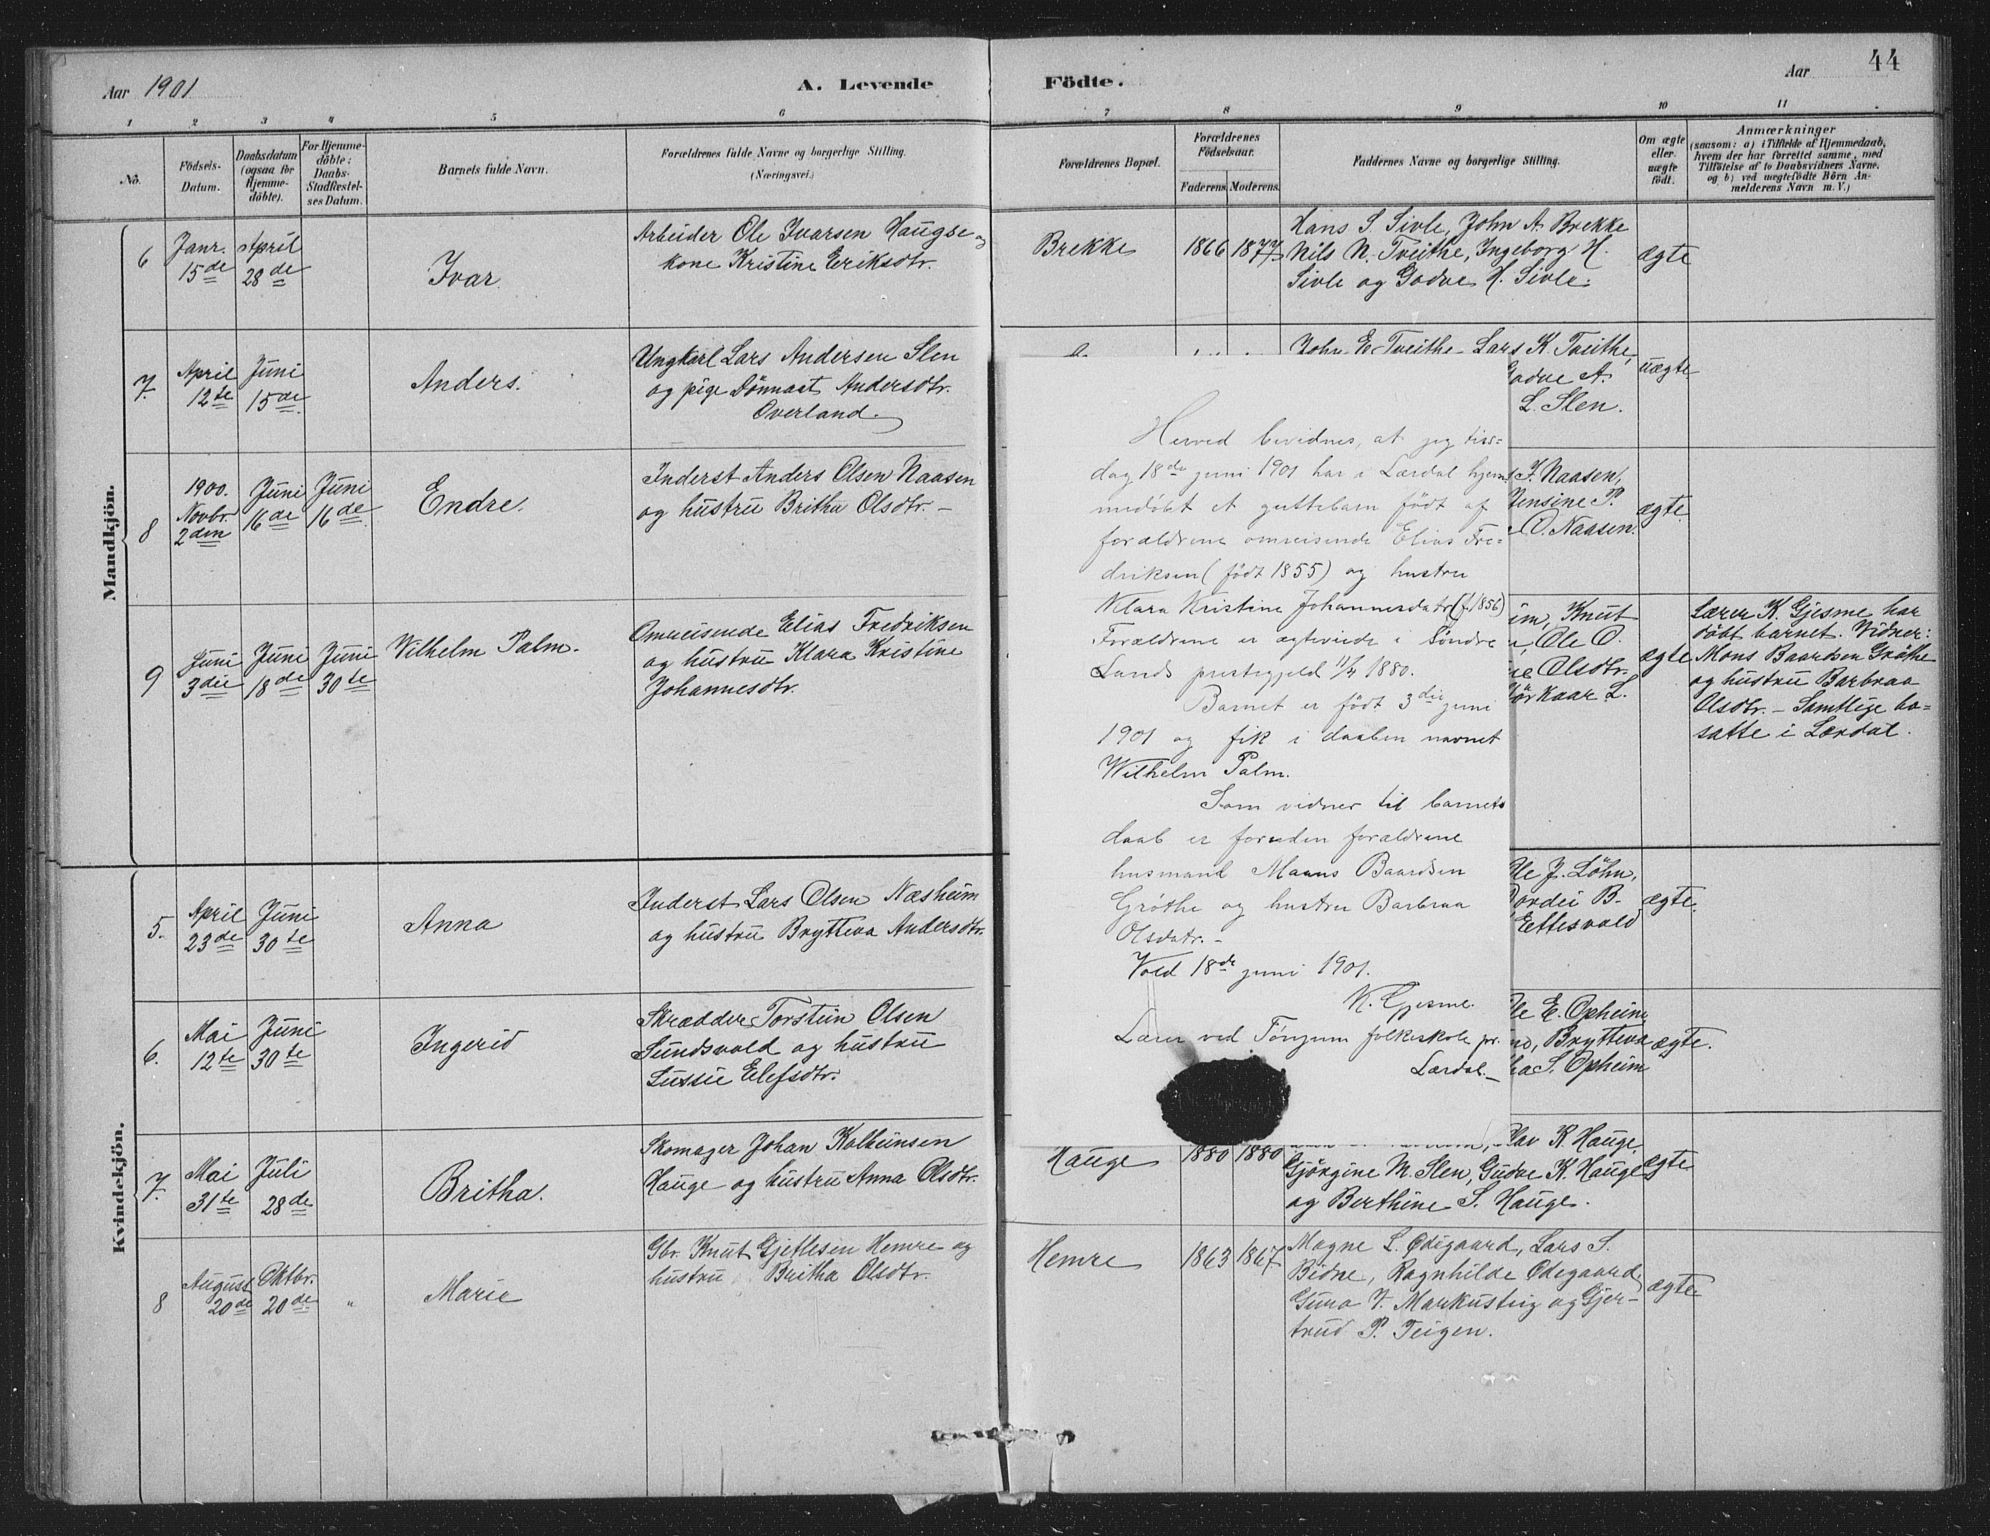 Aar 1901
A. Levende Födte.
Aar
44
1 2 3 4 5 6 7 8 9 10 11
No.
Födsels-
Datum.
Daabsdatum
(ogsaa for
Hjemme-
döbte).
For Hjemme-
döbte:
Daabs-
Stadfæstel-
ses Datum.
Barnets fulde Navn.
Forældrenes fulde Navne og borgerlige Stilling.
(Næringsvei.)
Forældrenes Bopæl.
Forældrenes
Födselsaar.
Faderens. Moderens.
Faddernes Navne og borgerlige Stilling.
Om ægte
eller
uægte
födt.
Anmærkninger
(saasom: a) i Tilfælde af Hjemmedaab,
hvem der har forrettet samme, med
Tilföielse af to Daabsvidners Navne,
og b) ved uegtefödte Börn An-
melderens Navn m. V.)
Mandkjön.
6
Janr.
15de
April
28de
Ivar
Arbeider Ole Ivarsen Haugse og
kone Kristine Eriksdtr.
Brekke
1866 1877
Hans S. Sivle, John A. Brekke
Nils N. Tveithe, Ingeborg H.
Sivle og Godve H. Sivle.
ægte
7.
April
12te
Juni
15de
Anders.
Ungkarl Lars Andersen Slen
og pige Dönnaat Andersdtr.
Överland.
John E. Tveithe Lars K. Tveithe,
Godve A.
L. Slen.
uægte
8
1900.
Novbr.
2den
Juni
16de
Juni
16de
Endre.
Inderst Anders Olsen Naasen
og hustru Britha Olsdtr. –
J. Naasen,
Jensine P.
O. Naasen.
ægte.
9
Juni
3die
Juni
18de
Juni
30te
Vilhelm Palm.
Omreisende Elias Fredriksen
og hustru Klara Kristine
Johannesdtr.
im, Knut
, Ole O.
Olsdtr.
kaar L.
ægte
Lærer K. Gjesme har
döbt barnet. Vidner:
Mons Baardsen Gröthe
og hustru Barbraa
Olsdtr. – Samtlige bo=
satte i Lærdal.
Herved bevidnes, at jeg tirs=
dag 18de juni 1901 har i Lærdal hjem=
medöbt et guttebarn födt af
forældrene omreisende Elias Fre=
driksen (födt 1855) og hustru
Klara Kristine Johannesdatr (f. 1856)
Forældrene er ægteviede i Söndre
Lands prestegjeld 11/4 1880.
Barnet er födt 3die juni
1901 og fik i daaben navnet
Wilhelm Palm.
Som vidner til barnets
daab er foruden forældrene
husmand Maans Baardsen
Gröthe og hustru Barbraa
Olsdatr. –
Vold 18de juni 1901.
K. Gjesme.
Lærer ved Tönjum folkeskole pr.
Lærdal. –
Kvindekjön.
5.
April
23de
Juni
30te
Anna
Inderst Lars Olsen Næsheim
og hustru Brytteva Andersdtr.
Ole J. Löhn,
Dordei B.
Ettesvold
ægte.
6.
Mai
12te
Juni
30te
Ingerid
Skrædder Torstein Olsen
Sundsvold og hustru
Sussie Elefsdtr.
Ole E. Opheim,
Brytteva
S. Opheim
ægte.
7.
Mai
31te
Juli
28de
Britha.
Skomager Johan Kolbeinsen
Hauge og hustru Anna Olsdtr.
Hauge
1880 1880
Olav K. Hauge,
Gjörgine M. Slen, Gudve K. Hauge
og Berthine S. Hauge.
ægte
8
August
20de
Oktbr.
20de
"
Marie
Gbr. Knut Gjetlesen Hemre og
hustru Britha Olsdtr.
Hemre
1863 1867
Magne L. Ødegaard, Lars S.
Bidne, Ragnhilde Ødegaard,
Guro I. Markusteig og Gjer-
trud P. Teigen.
ægte